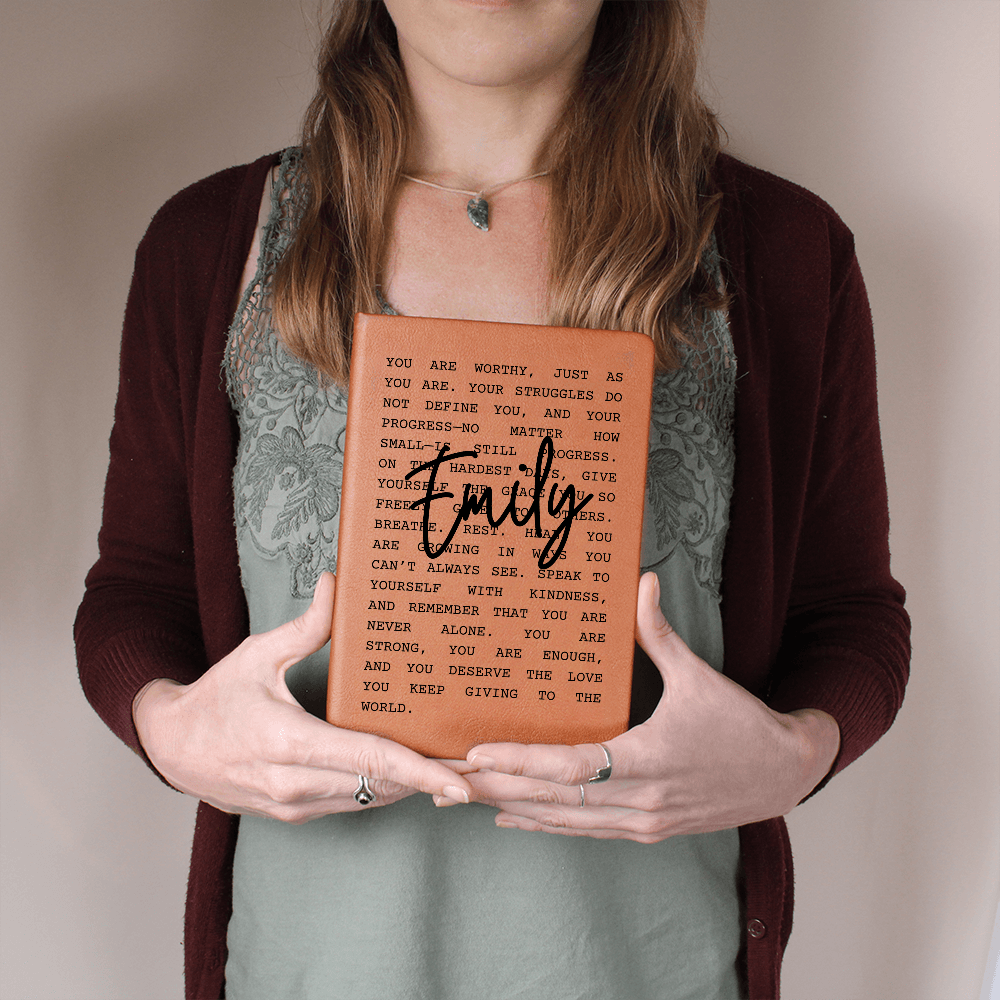 YOU ARE WORTHY, JUST AS
YOU ARE. YOUR STRUGGLES DO
NOT DEFINE YOU, AND YOUR
PROGRESS—NO MATTER HOW
SMALL—IS STILL PROGRESS.
ON THE HARDEST DAYS, GIVE
YOURSELF THE GRACE YOU SO
FREELY GIVE TO OTHERS.
BREATHE. REST. HEAL. YOU
ARE GROWING IN WAYS YOU
CAN'T ALWAYS SEE. SPEAK TO
YOURSELF WITH KINDNESS,
AND REMEMBER THAT YOU ARE
NEVER ALONE. YOU ARE
STRONG, YOU ARE ENOUGH,
AND YOU DESERVE THE LOVE
YOU KEEP GIVING TO THE
WORLD.
Emily